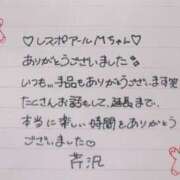 ♡レスポアールMちゃん♡
ありがとうございました
いつも…手品もありがとうございます笑
たくさんお話もして、延長まで、
本当に楽しい時間をありがとう
ございました♡
芹沢